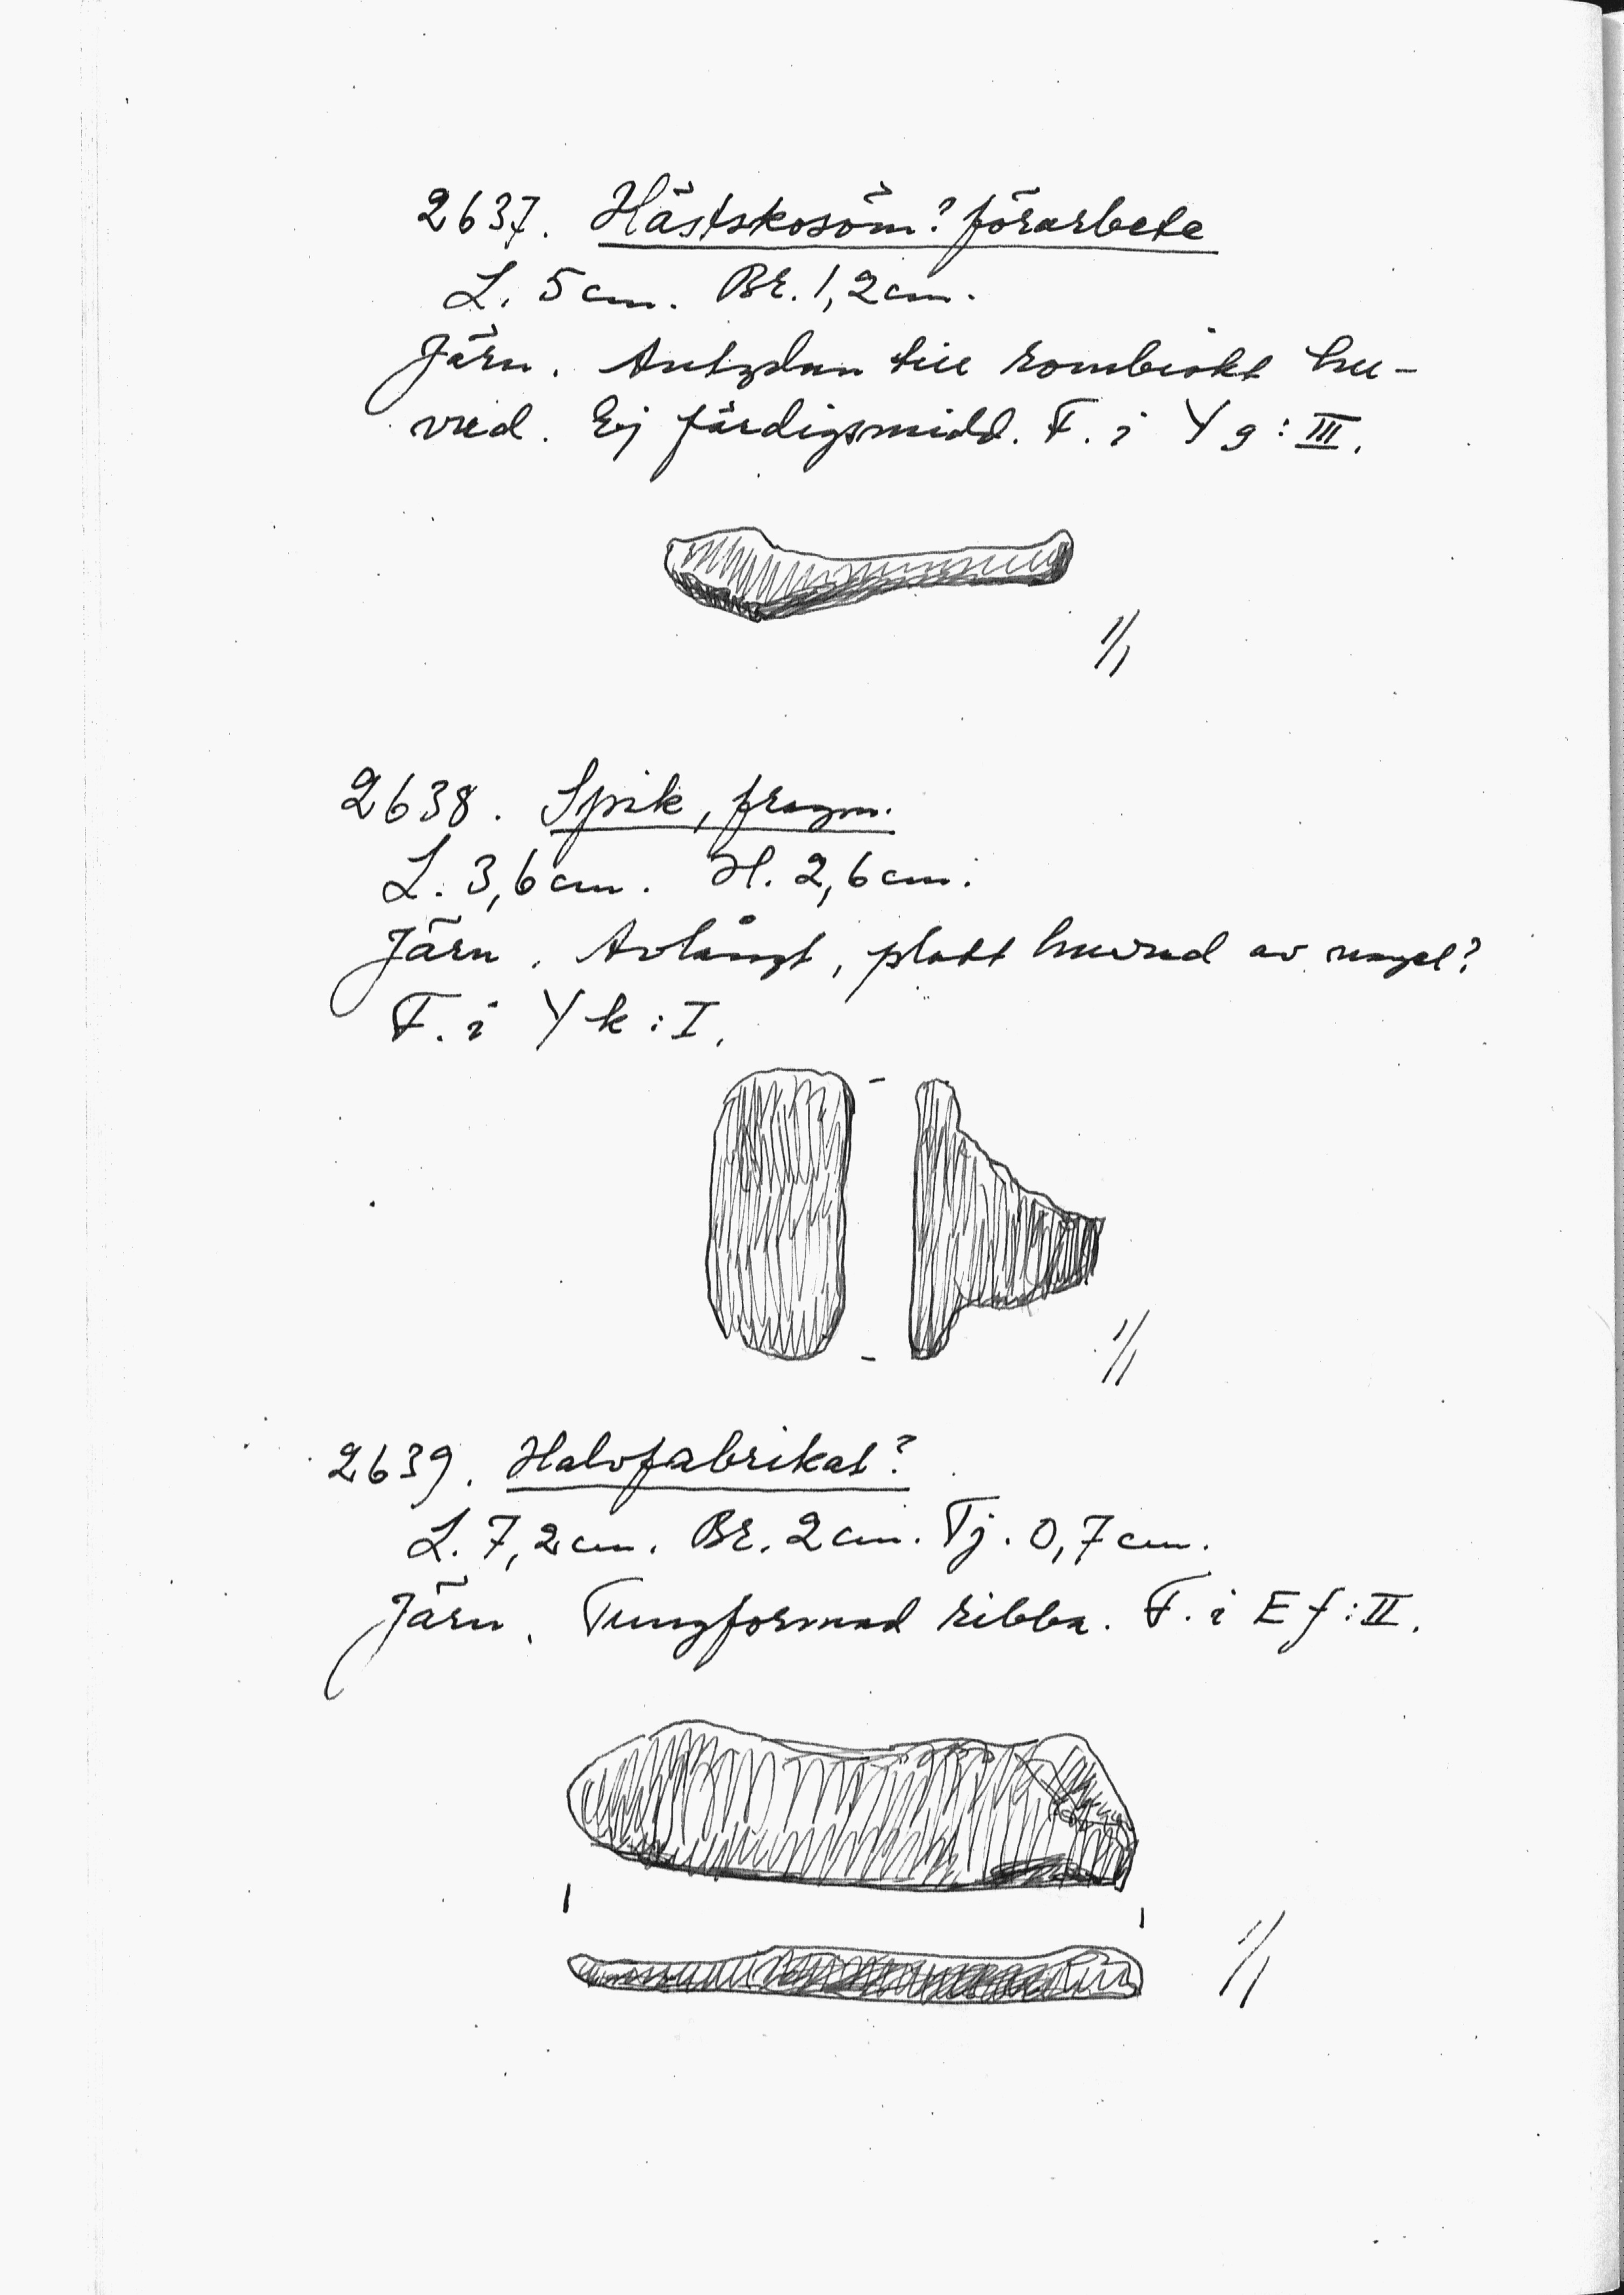 2637. Hästskosöm? förarbete
L. 5 cm. Br. 1,2 cm.
Järn. Antydan till rombiskt hu-
vud. Ej färdigsmidd. F. i Yg:III.
1/1
2638. Spik, fragm.
L. 3,6 cm. H. 2,6 cm.
Järn. Avlångt, platt huvud av nagel?
F. i Yk:I.
1/1
2639. Halvfabrikat?
L. 7,2 cm. Br. 2 cm. Tj. 0,7 cm.
Järn. Tungformad ribba. F. i Ef:II.
1/1